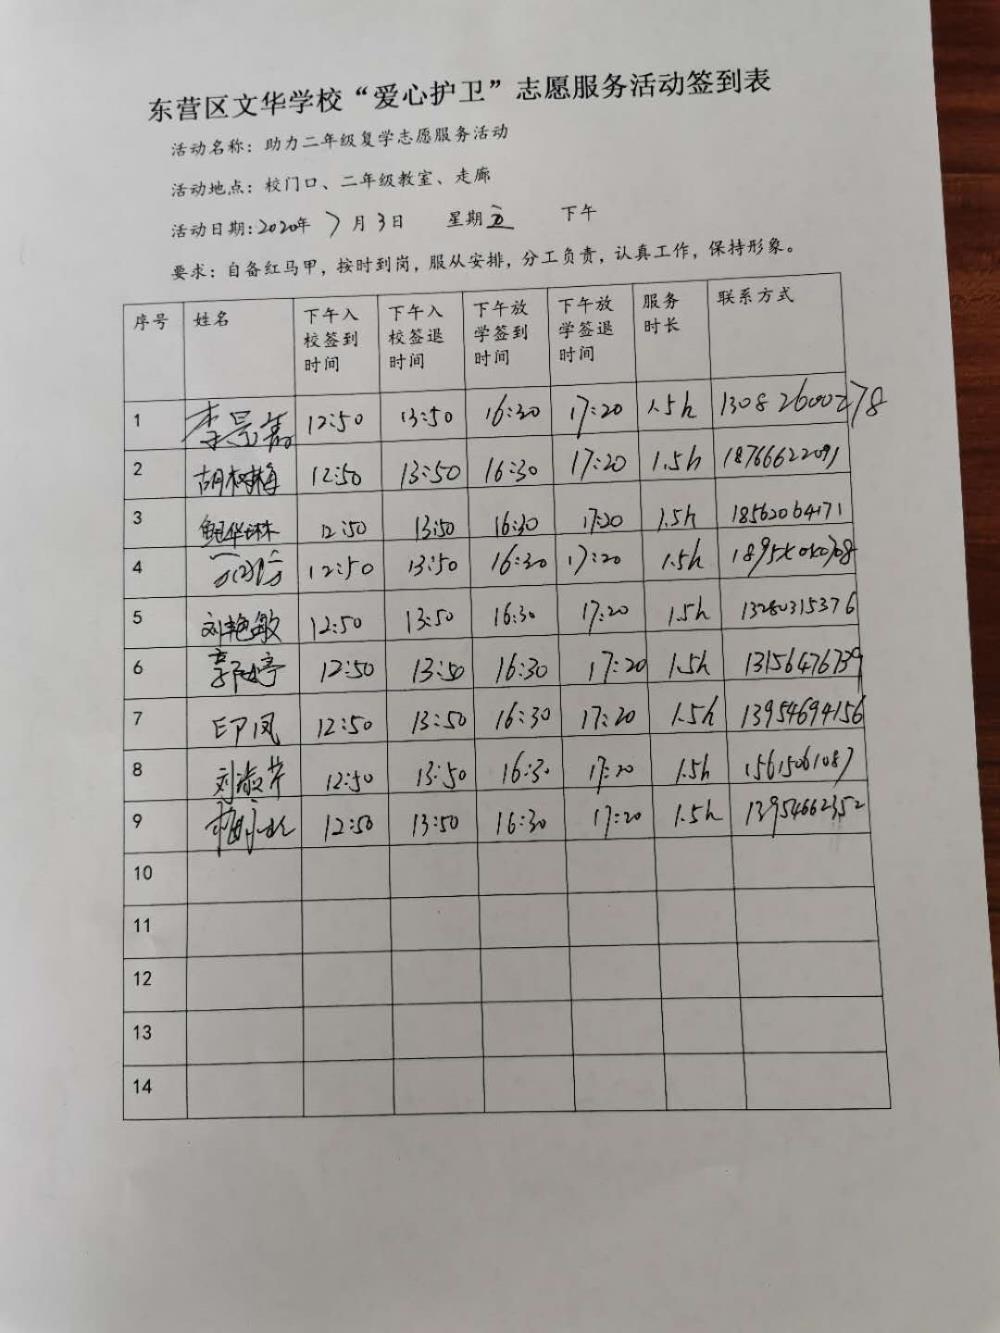 东营区文华学校“爱心护卫”志愿服务活动签到表
活动名称：助力二年级复学志愿服务活动
活动地点：校门口、二年级教室、走廊
活动日期:2020年 7月3日 星期五 下午
要求：自备红马甲，按时到岗，服从安排，分工负责，认真工作，保持形象。
序号 姓名 下午入校签到时间 下午入校签退时间 下午放学签到时间 下午放学签退时间 服务时长 联系方式
1 12:50 13:50 16:30 17:20 1.5h 13082600278
2 胡树梅 12:50 13:50 16:30 17:20 1.5h 18766622091
3 鲍华琳 12:50 13:50 16:30 17:20 1.5h 18562064171
4 12:50 13:50 16:30 17:20 1.5h
5 刘艳敏 12:50 13:50 16:30 17:20 1.5h 13280315376
6 12:50 13:50 16:30 17:20 1.5h 13156476739
7 印凤 12:50 13:50 16:30 17:20 1.5h 13954694156
8 刘淑芹 12:50 13:50 16:30 17:20 1.5h 15615061087
9 12:50 13:50 16:30 17:20 1.5h 13954662352
10
11
12
13
14